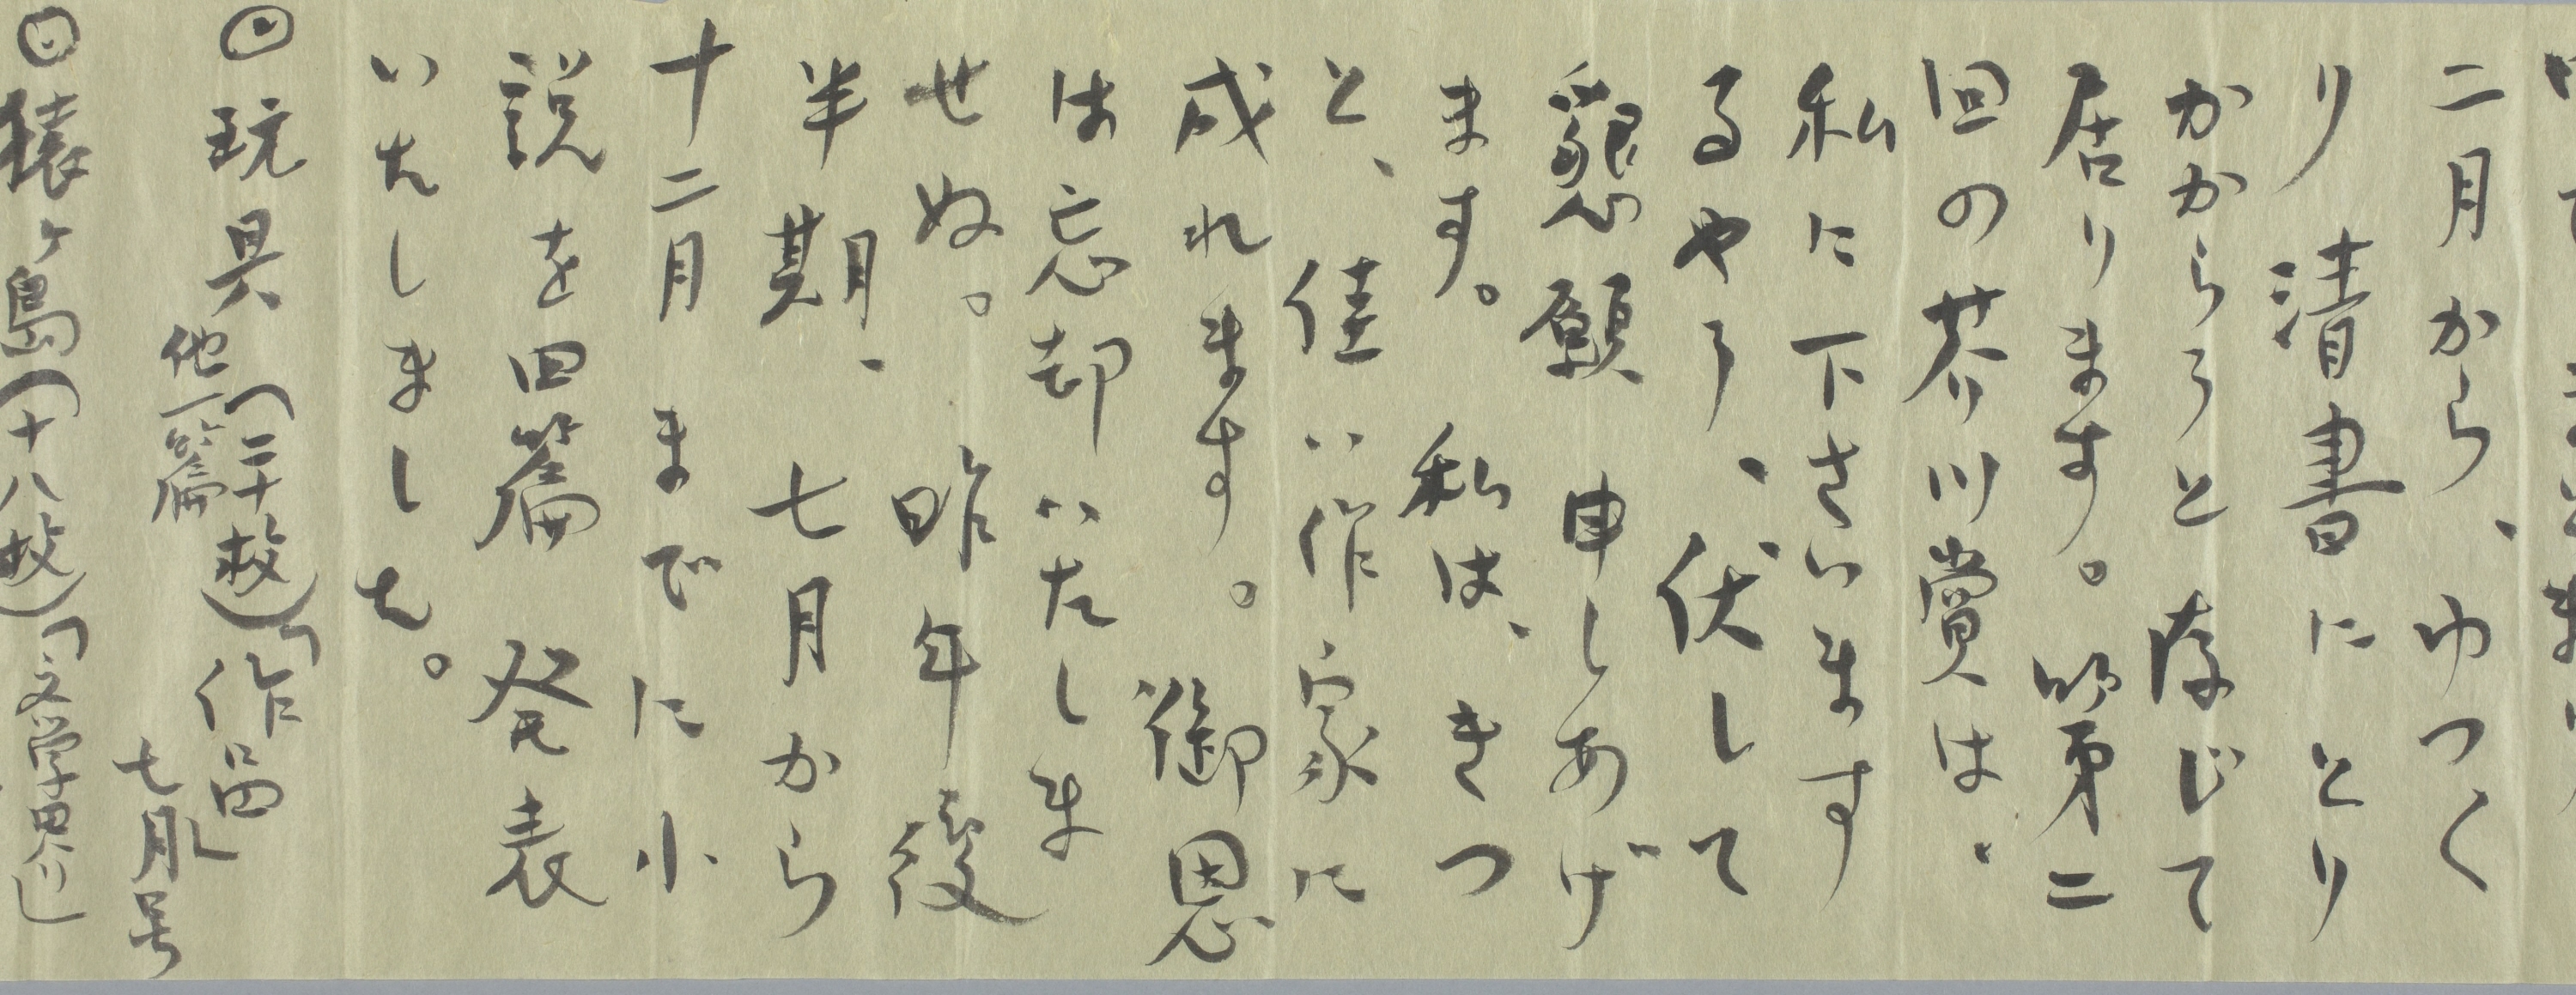 二月から、ゆつく
り清書にとり
かからうと存じて
居ります。第二
回の芥川賞は、
私に下さいます
るやう、伏して
懇願申しあげ
ます。私は、きつ
と、佳い作家に
成れます。御恩
は忘却いたしま
せぬ。昨年後
半期、七月から
十二月までに小
説を四篇発表
いたしました。
◎玩具(二十枚)「作品」
他一篇 七月号
◎猿ヶ島(十八枚)「文学界」